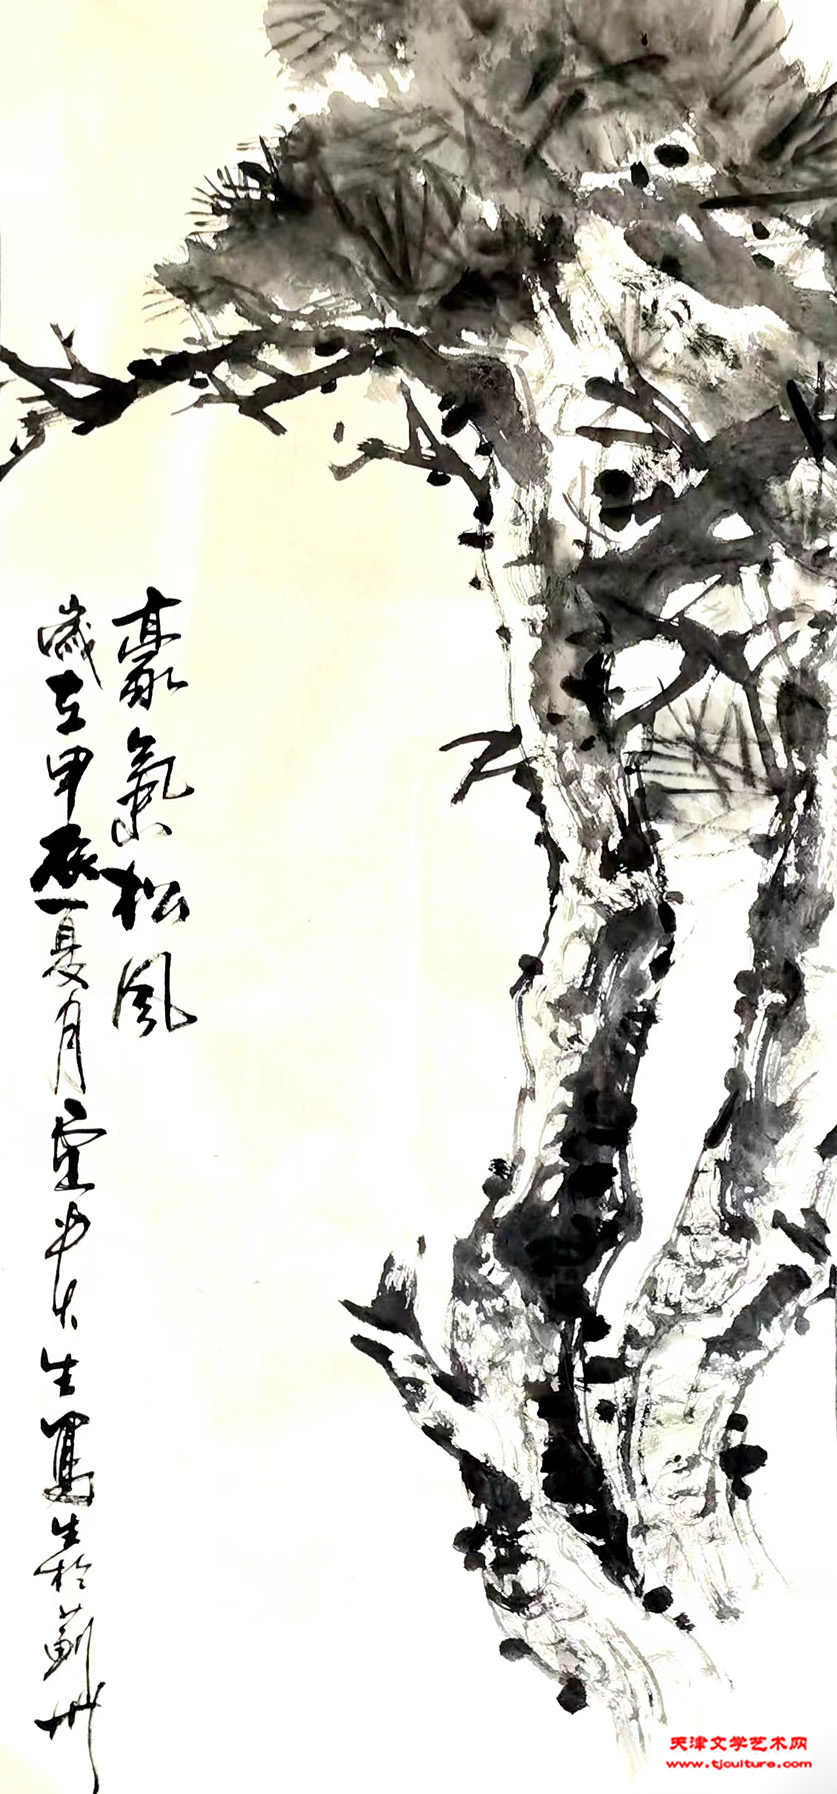 豪氣松風
歲在甲辰夏月
生寫生於薊州
天津文学艺术网
www.tjculture.com